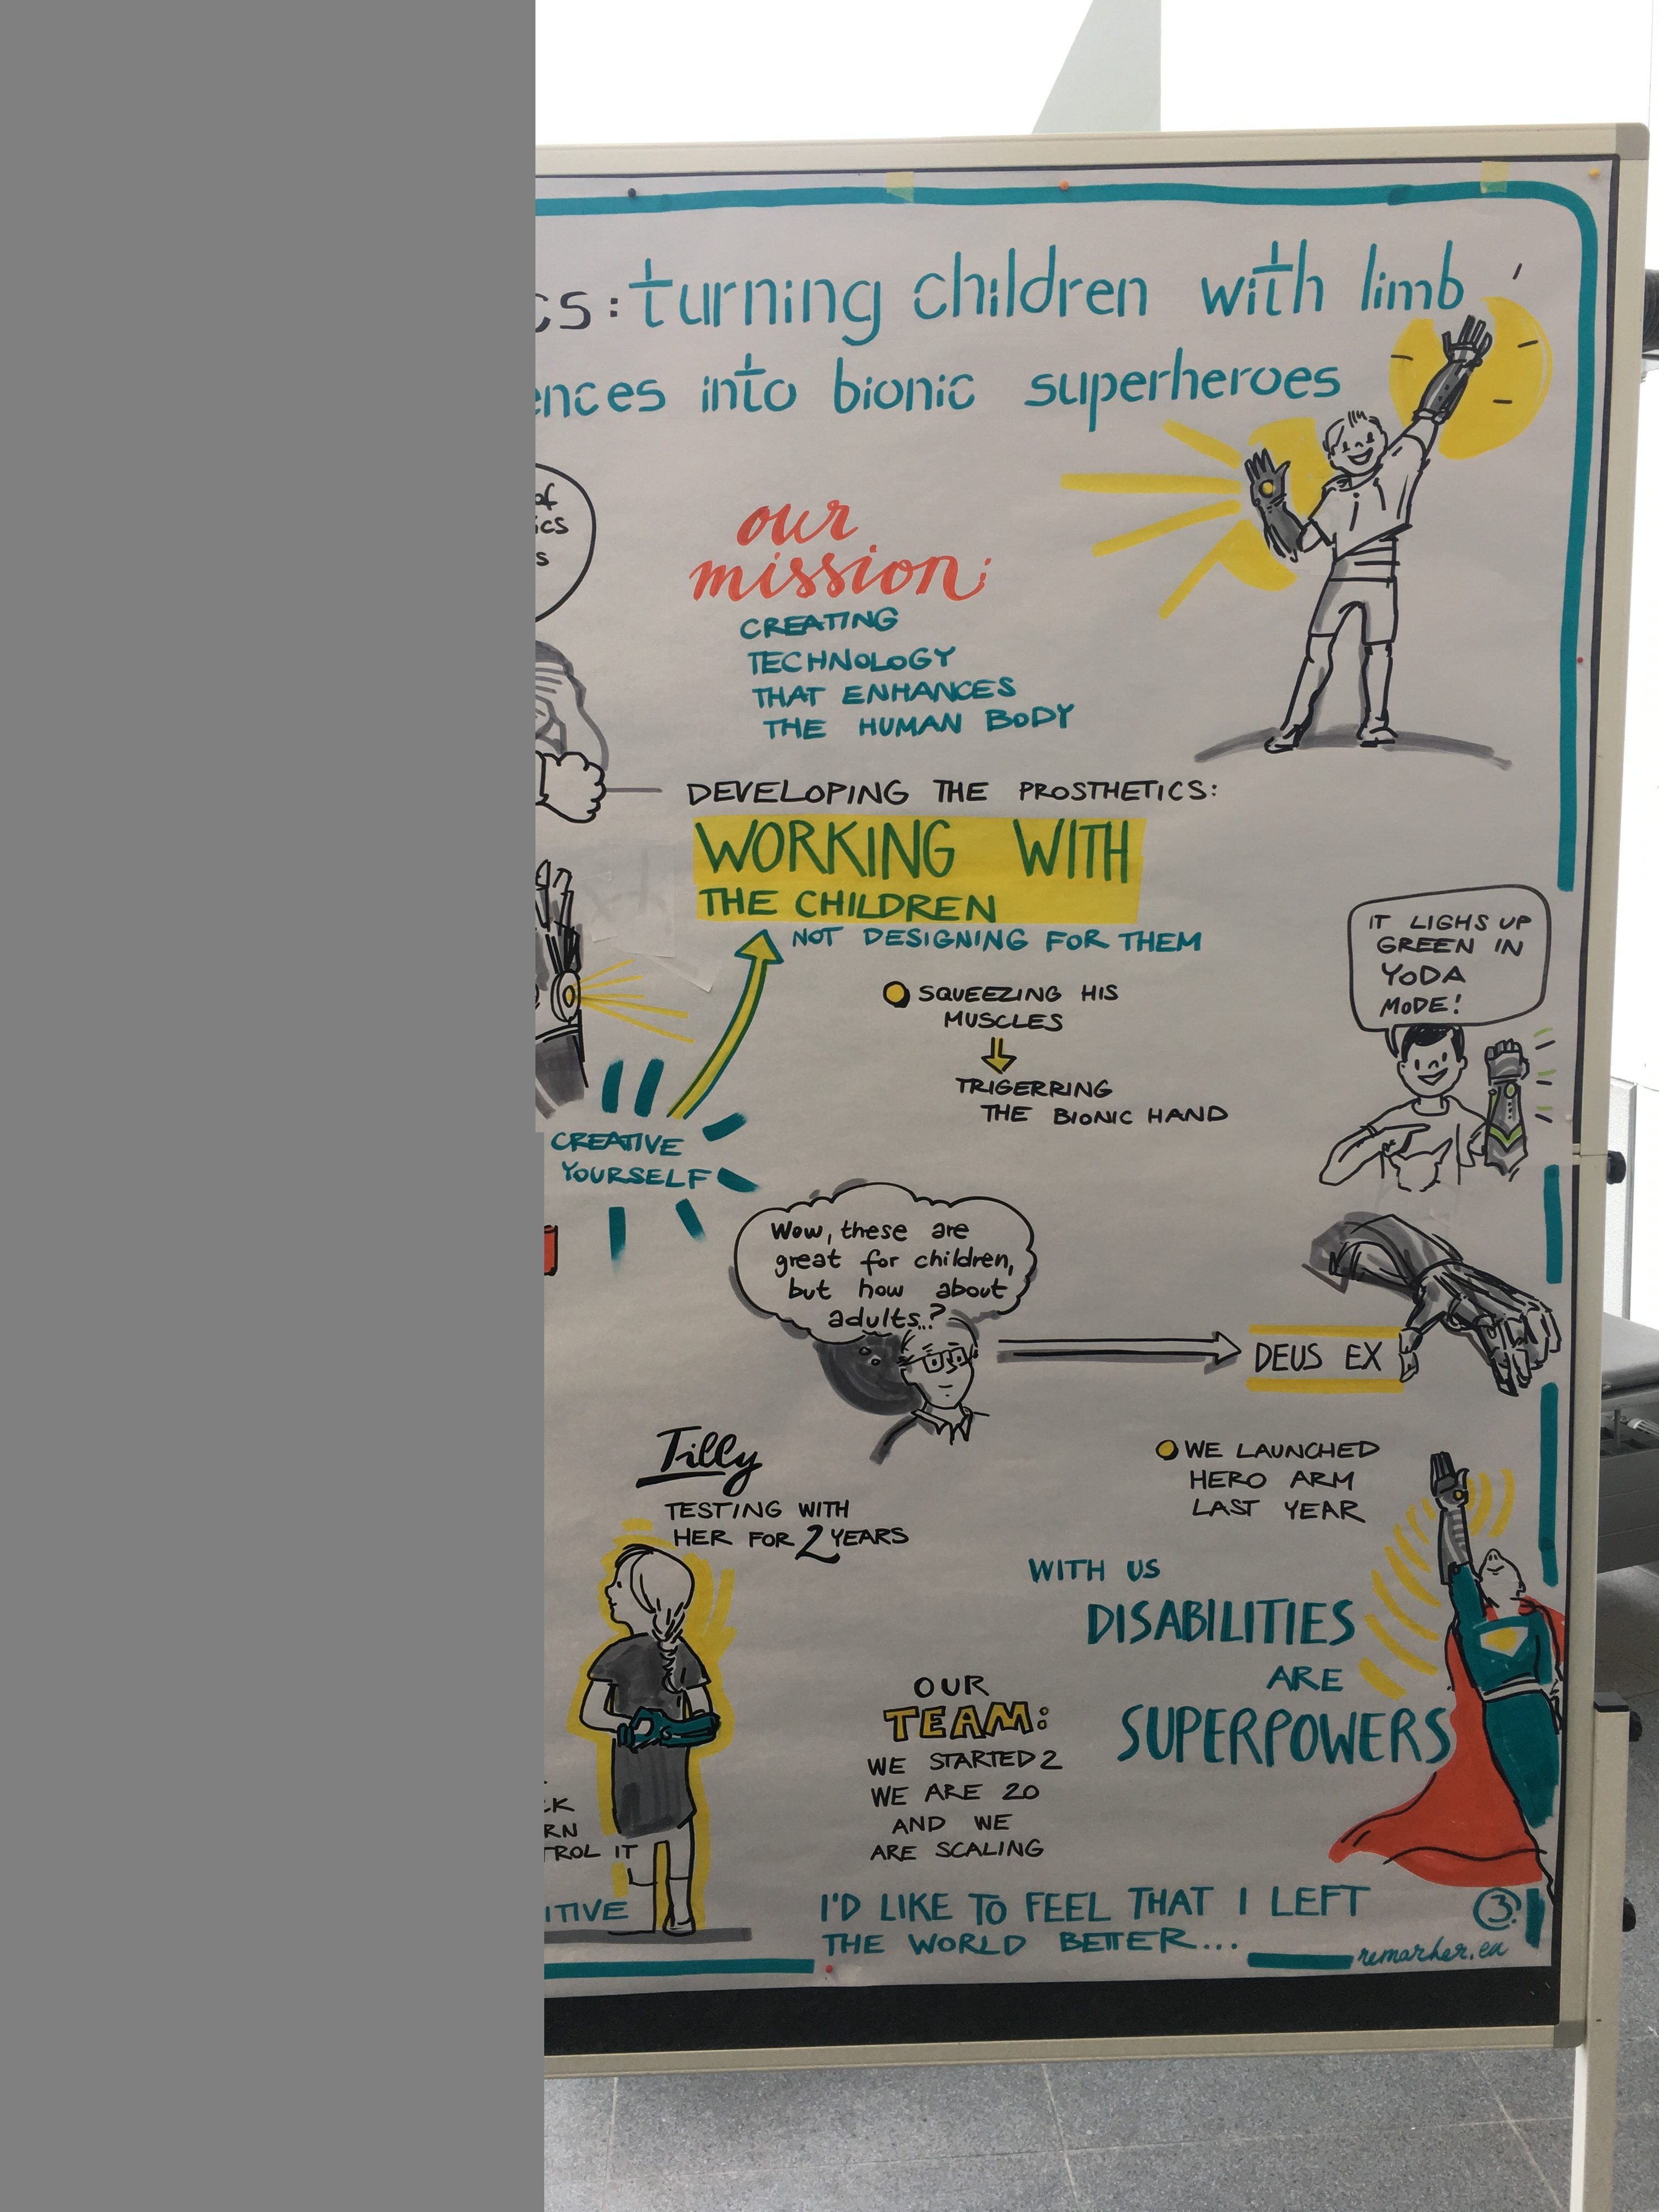 : turning children with limb
into bionic superheroes
of
our
mission:
CREATING
TECHNOLOGY
THAT ENHANCES
THE HUMAN BODY
DEVELOPING THE PROSTHETICS:
WORKING WITH
THE CHILDREN
NOT DESIGNING FOR THEM
SQUEEZING HIS
MUSCLES
TRIGERRING
THE BIONIC HAND
IT LIGHS UP
GREEN IN
YODA
MODE!
CREATIVE
YOURSELF
Wow, these are
great for children,
but how about
adults..?
DEUS EX
Tilly
TESTING WITH
HER FOR 2 YEARS
WE LAUNCHED
HERO ARM
LAST YEAR
WITH US
DISABILITIES
ARE
SUPERPOWERS
OUR
TEAM:
WE STARTED 2
WE ARE 20
AND WE
ARE SCALING
IT
I'D LIKE TO FEEL THAT I LEFT
THE WORLD BETTER...
3
remarker.eu